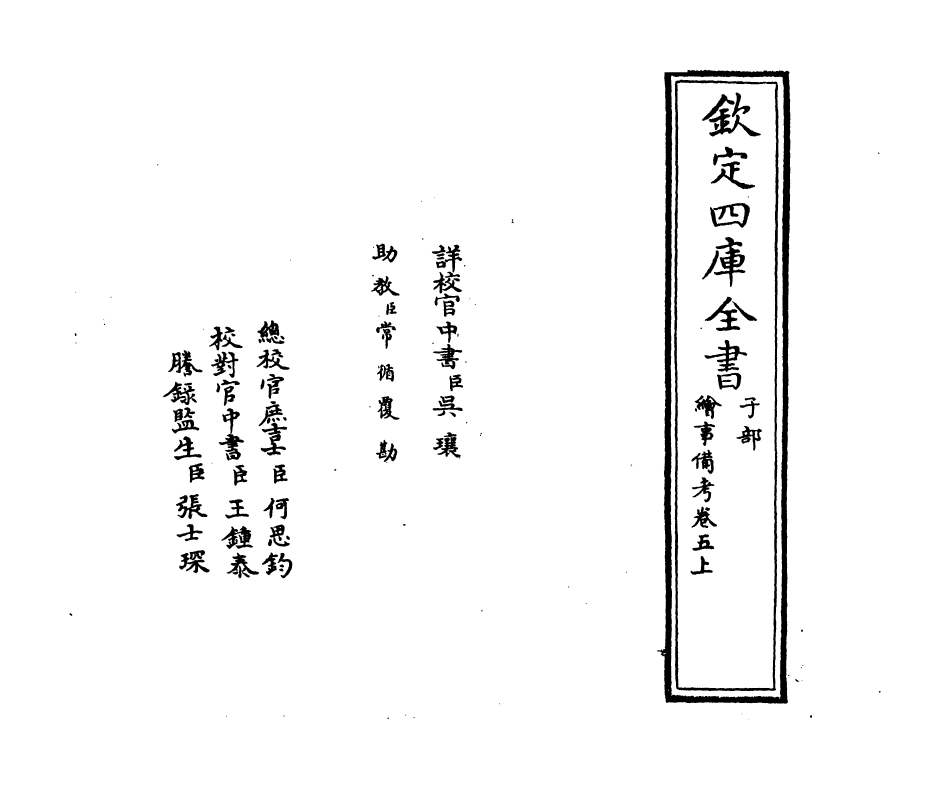 欽定四庫全書
子部
繪事備考卷五上
詳校官中書臣吳瓖
助教臣常循覆勘
總校官庶吉士臣何思鈞
校對官中書臣王鍾泰
謄錄監生臣張士琛